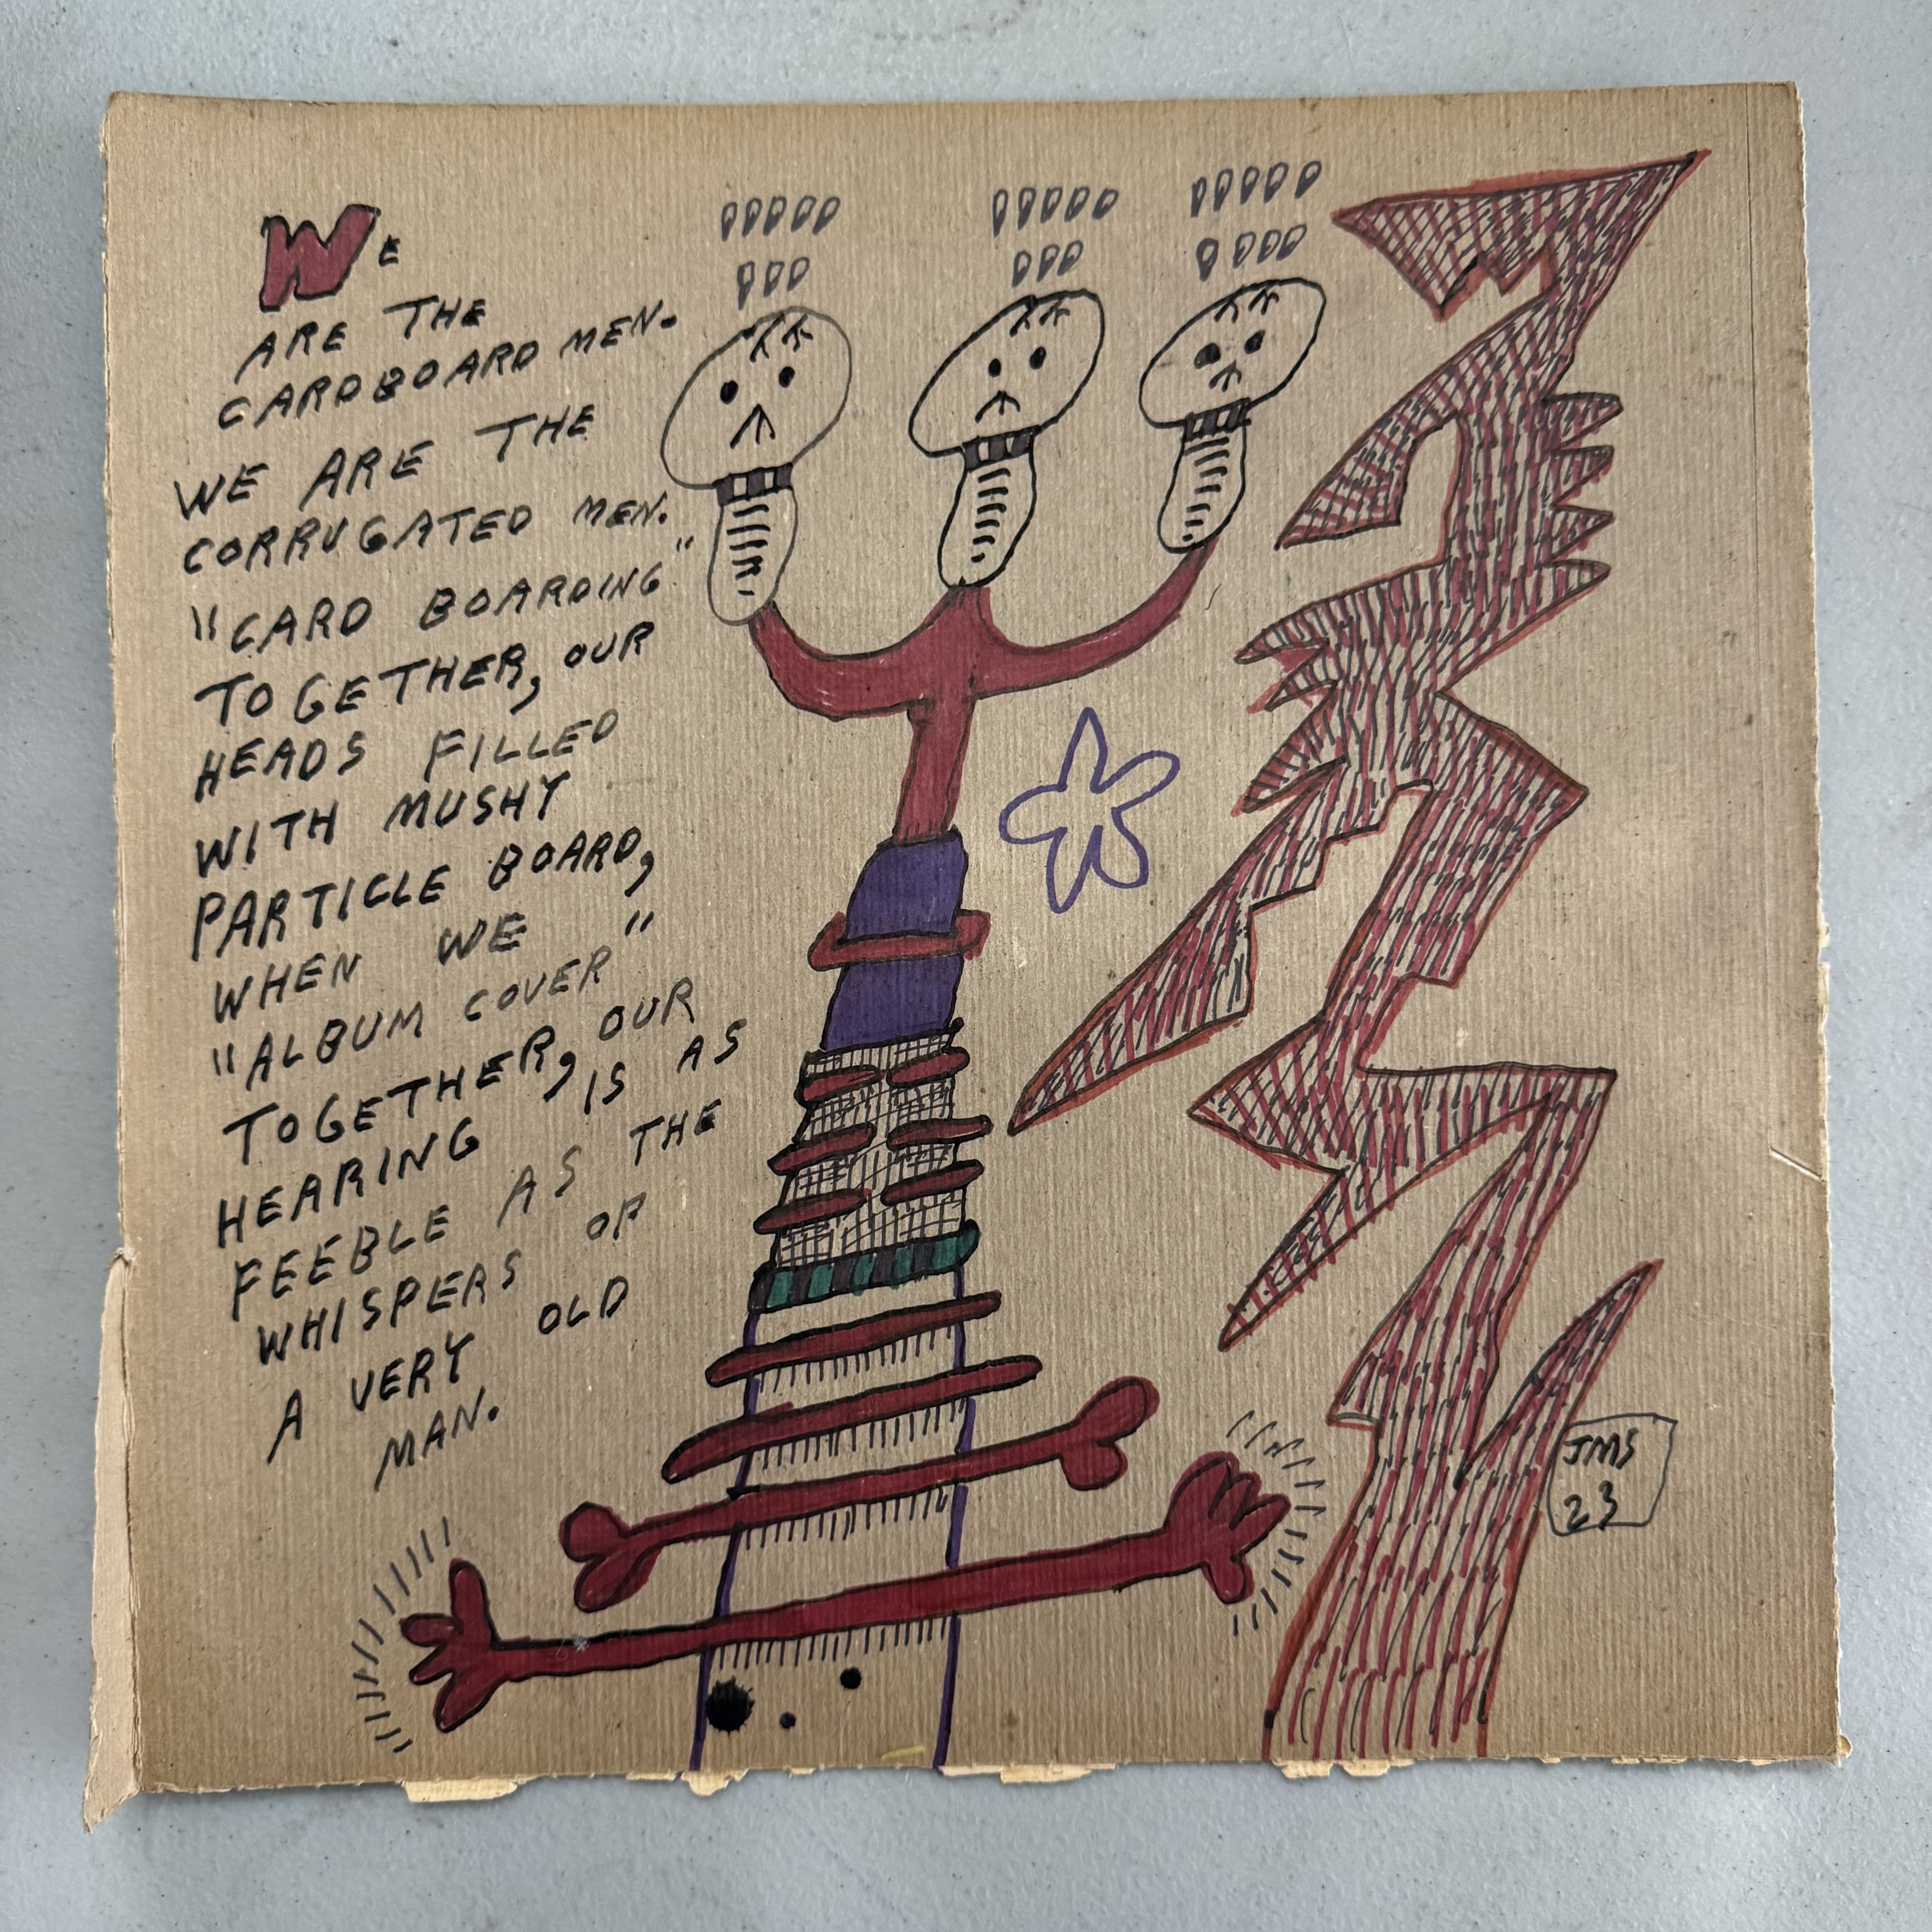 WE
ARE THE
CARDBOARD MEN.
WE ARE THE
CORRUGATED MEN.
"CARD BOARDING"
TOGETHER, OUR
HEADS FILLED
WITH MUSHY
PARTICLE BOARD,
WHEN WE
"ALBUM COVER"
TOGETHER, OUR
HEARING IS AS
FEEBLE AS THE
WHISPERS OF
A VERY OLD
MAN.
JMS
23